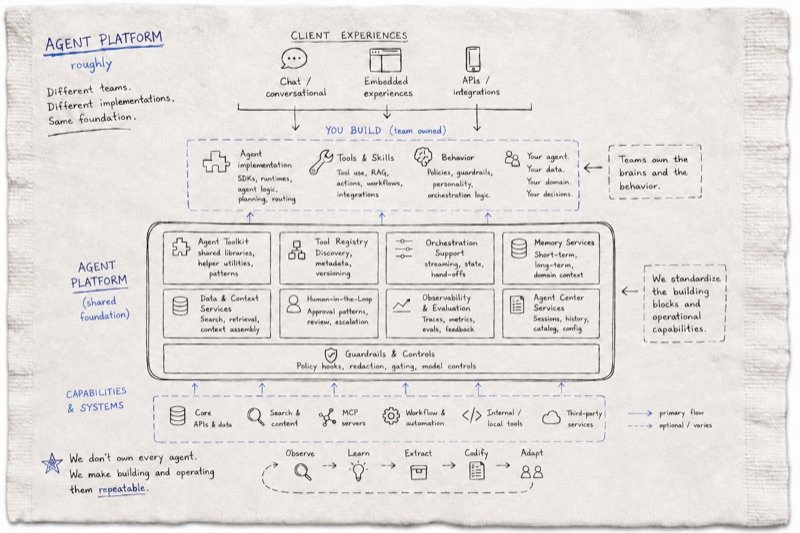 AGENT PLATFORM
roughly
Different teams.
Different implementations.
Same foundation.
CLIENT EXPERIENCES
Chat /
conversational
Embedded
experiences
APIs /
integrations
YOU BUILD (team owned)
Agent
implementation
SDKs, runtimes,
agent logic,
planning, routing
Tools & Skills
Tool use, RAG,
actions, workflows,
integrations
Behavior
Policies, guardrails,
personality,
orchestration logic
Your agent.
Your data.
Your domain.
Your decisions.
Teams own the
brains and the
behavior.
AGENT
PLATFORM
(shared
foundation)
Agent Toolkit
shared libraries,
helper utilities,
patterns
Tool Registry
Discovery,
metadata,
versioning
Orchestration
Support
streaming, state,
hand-offs
Memory Services
Short-term,
long-term,
domain context
Data & Context
Services
Search, retrieval,
context assembly
Human-in-the-Loop
Approval patterns,
review, escalation
Observability
& Evaluation
Traces, metrics,
evals, feedback
Agent Center
Services
Sessions, history,
catalog, config
Guardrails & Controls
Policy hooks, redaction, gating, model controls
We standardize
the building
blocks and
operational
capabilities.
CAPABILITIES
& SYSTEMS
Core
APIs & data
Search &
content
MCP
servers
Workflow &
automation
Internal /
local tools
Third-party
services
primary flow
optional / varies
We don't own every agent.
We make building and operating
them repeatable.
Observe
Learn
Extract
Codify
Adapt